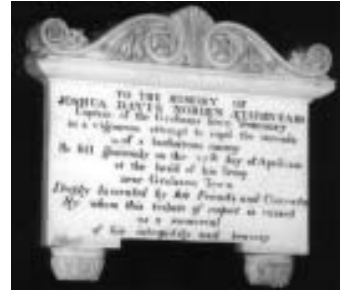 TO THE MEMORY OF
JOSHUA DAVIS NORDEN
Captain of the Grahams Town Yeomanry
in a vigorous attempt to repel the
of a barbarous enemy
He fell generously on the 25th day of April
at the head of his troop
near Grahams Town
Deeply lamented by his Friends and
By whom this tribute of respect is raised
as a memorial
of his integrity and bravery